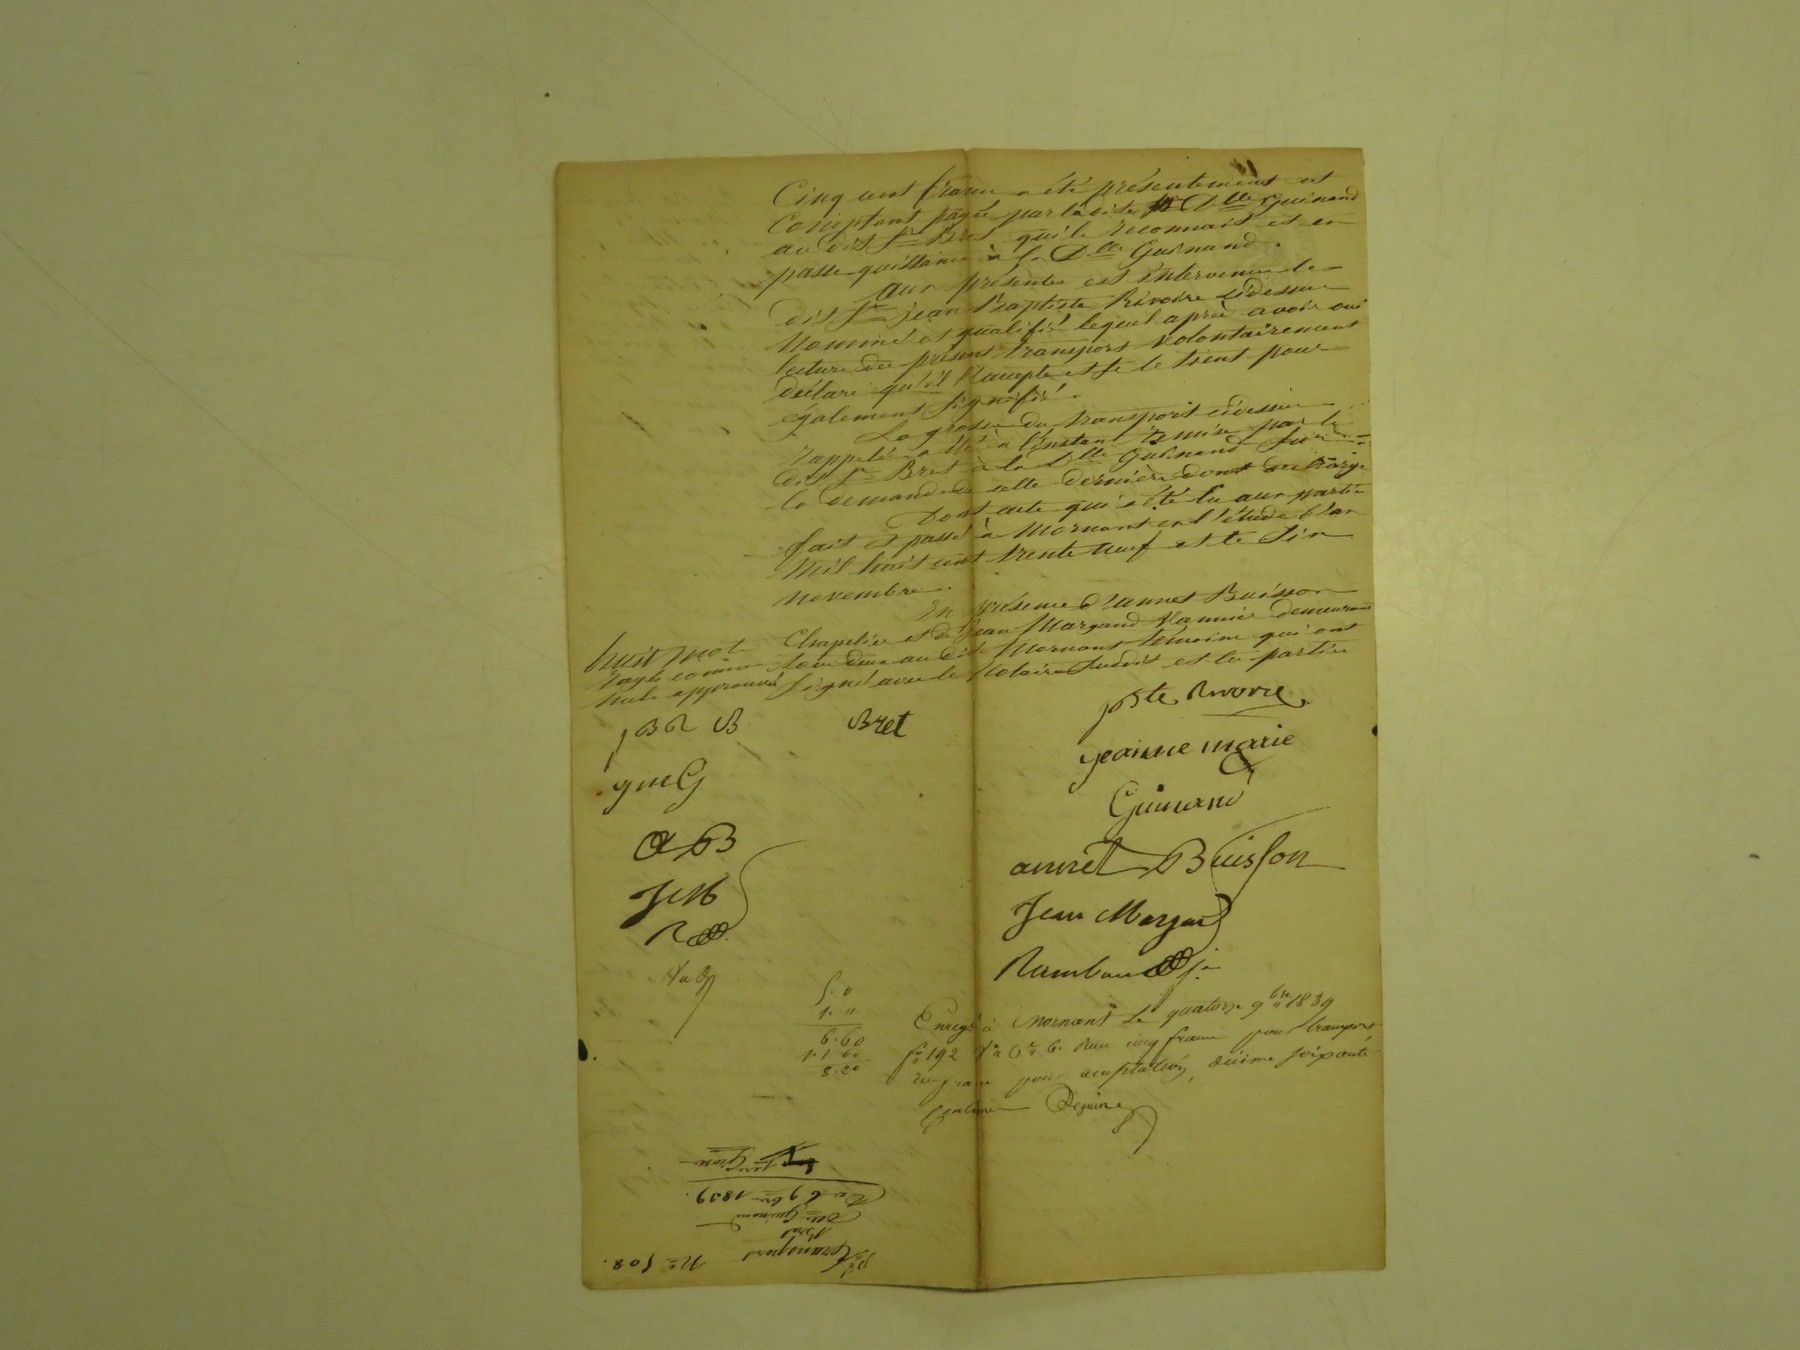 Cinq cent francs a été présentement et
Comptant payée par ladite Dlle Guinand
au dit Sr Bret qui le reconnait et en
passe quittance à la Dlle Guinand.
aux présentes est intervenu le
dit Sr jean Baptiste Rivoire cidessus
Nommé et qualifié lequel après avoir oui
lecture du présent transport volontairement
déclare qu'il l'accepte et se le tient pour
également signifié.
La grosse du transport cidessus
rappelé a été à l'instant remise par le
dit Sr Bret à la Dlle Guinand sur
la demande de cette dernière dont décharge
Dont acte qui a été lu aux parties
fait et passé à Mornant en l'étude l'an
Mil huit cent trente neuf et le Six
novembre.
En présence d'annet Buisson
Chapelier et de Jean Margand Vannier demeurant
tous deux au dit Mornant témoins qui ont
Signé avec le Notaire Susdit et les parties
huit mots
rayés comme
nuls approuvés
jBR B
Bret
jBte Rivoire
jeanne marie
Guinand
gmG
annet Buisson
AB
Jean Margand
JM
Rambaud
R
5. "
1. "
6.60
1.60
8.20
Enregé à Mornant le quatorze 9bre 1839
fo 192 Vo Co 6. Reçu cinq francs pour transport
un franc pour acceptation, décime soixante
centimes
No 508.
Transport
Bret
Dlle Guinand
Du 6 9bre 1839.